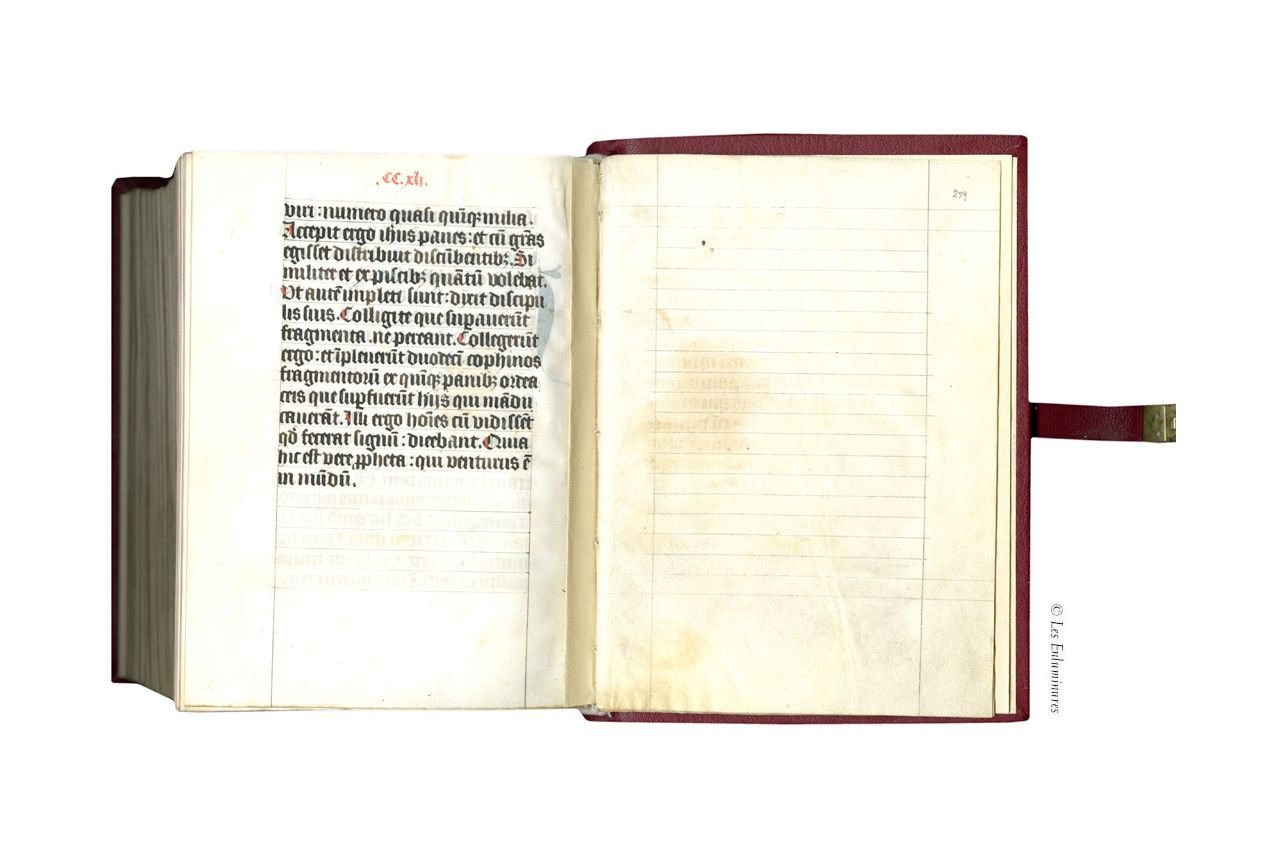 .CC.xli.
viri : numero quasi quīqȝ milia .
Accepit ergo ihus panes : et cū grās
egisset distribuit discūbentibȝ . Si
militer et ex piscibȝ quātū volebāt .
Vt autē impleti sunt : dixit discipu
lis suis . Colligite que supauerūt
fragmenta . ne pereant . Collegerūt
ergo : et īpleuerūt duodecī cophinos
fragmentorū ex quīqȝ panibȝ ordea
ceis que supfuerūt hijs qui mādu
cauerāt . Illi ergo hoīes cū vidissēt
qd fecerat signū : dicebant . Quia
hic est vere ppheta : qui venturus ē
in mūdū .
279
© Les Enluminures